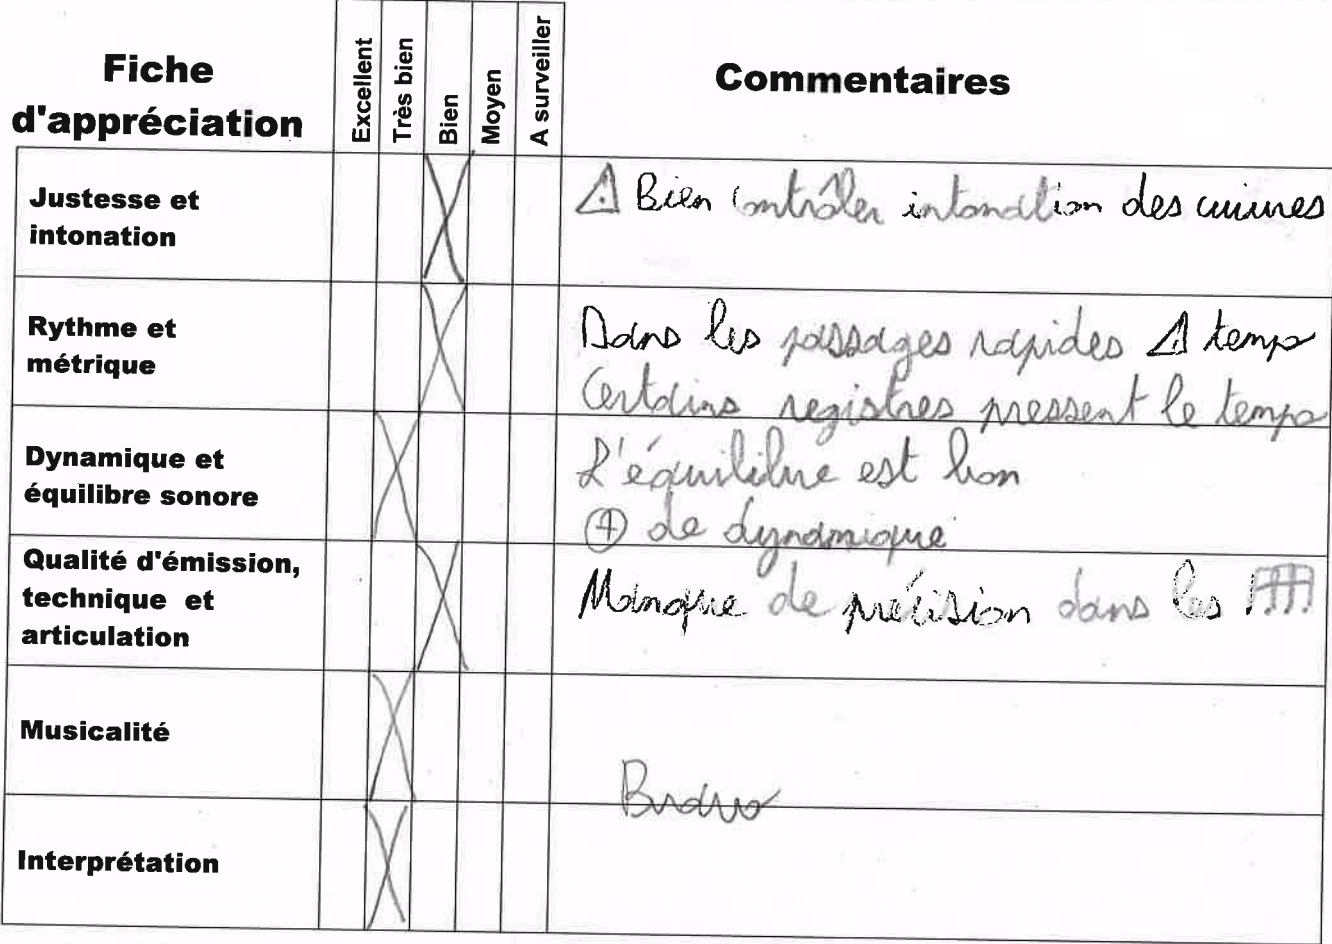 Fiche
d'appréciation
Excellent
Très bien
Bien
Moyen
A surveiller
Commentaires
Justesse et
intonation
⚠ Bien contrôler intonation des cuivres
Rythme et
métrique
Dans les passages rapides ⚠ temps
Certains registres pressent le temps
Dynamique et
équilibre sonore
L'équilibre est bon
⊕ de dynamique
Qualité d'émission,
technique et
articulation
Manque de précision dans les
Musicalité
Bravo
Interprétation